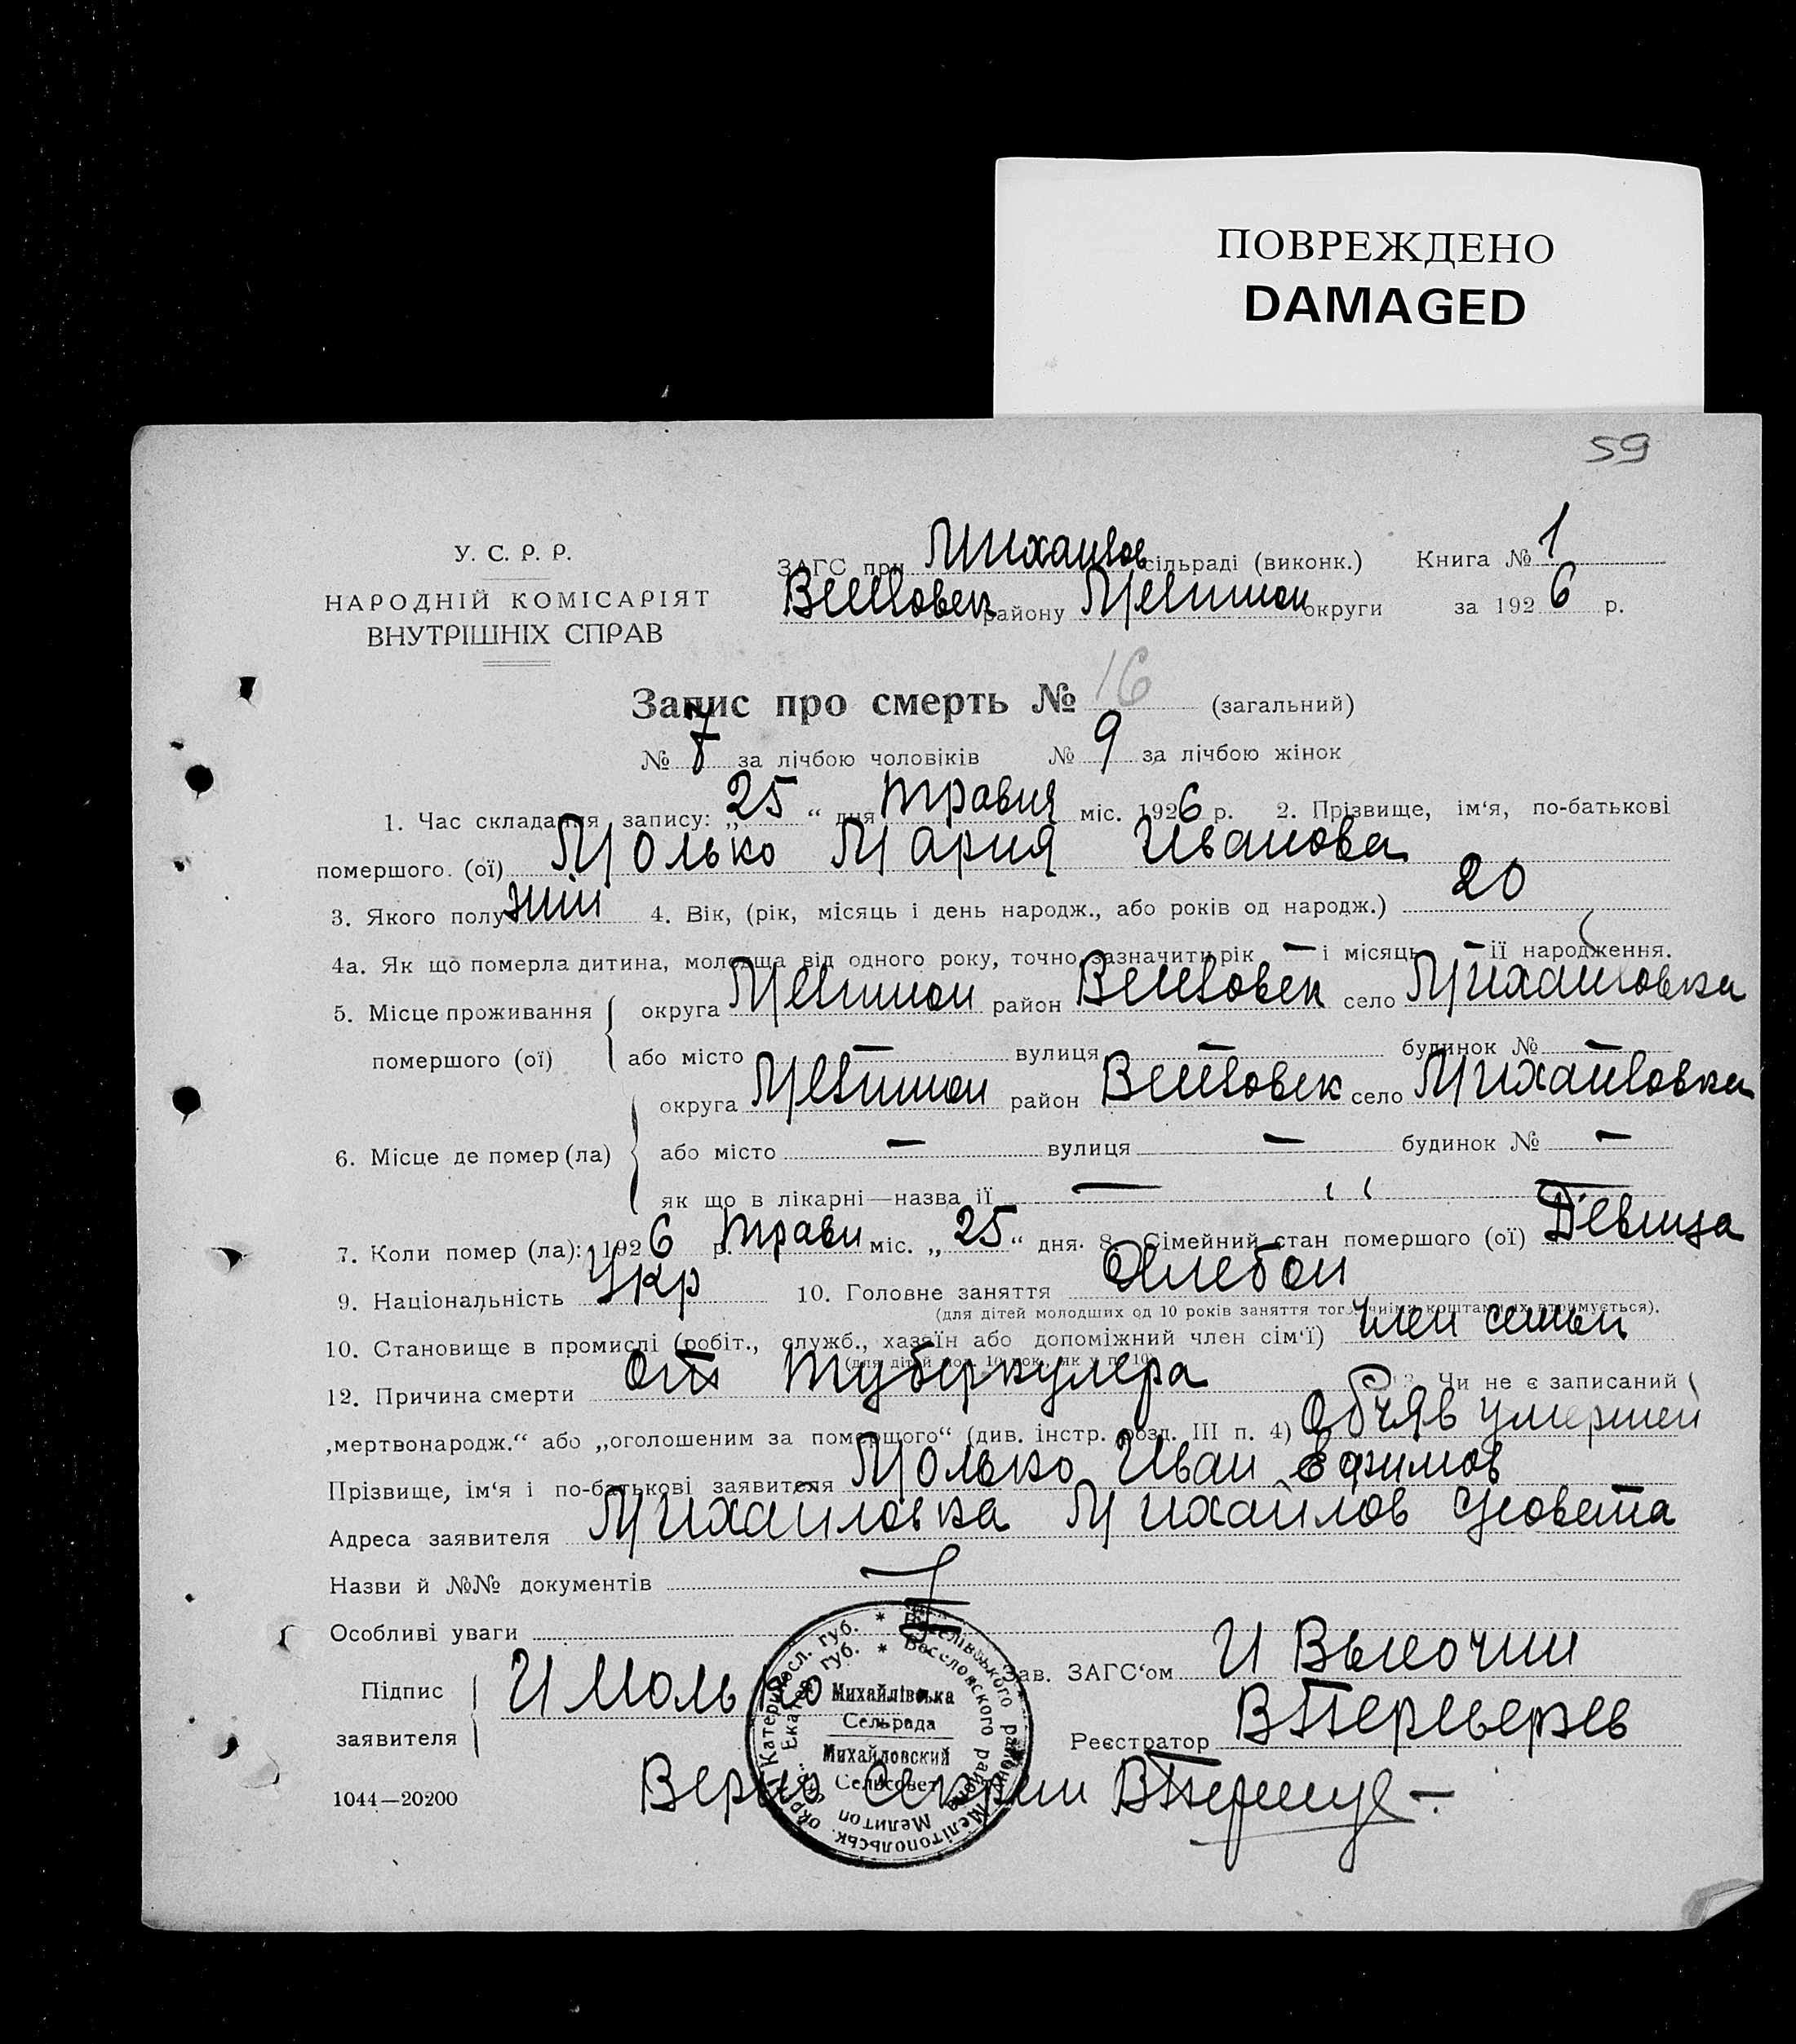 ПОВРЕЖДЕНО
DAMAGED
59
У. С. Р. Р.
НАРОДНІЙ КОМІСАРІЯТ
ВНУТРІШНІХ СПРАВ
ЗАГС при Михайлов сільраді (виконк.) Книга № 1
Веселовск району Мелитоп округи за 1926 р.
Запис про смерть № 16 (загальний)
№ 7 за лічбою чоловіків № 9 за лічбою жінок
1. Час складання запису: „25“ дня травня міс. 1926 р. 2. Прізвище, ім'я, по-батькові
помершого. (ої) Молько Мария Иванова
3. Якого полу жін 4. Вік, (рік, місяць і день народж., або років од народж.) 20
4а. Як що померла дитина, молодща від одного року, точно зазначити рік — і місяць — її народження.
5. Місце проживання помершого (ої) округа Мелитоп район Веселовск село Михайловка
або місто — вулиця — будинок № —
6. Місце де помер (ла) округа Мелитоп район Веселовск село Михайловка
або місто — вулиця — будинок № —
як що в лікарні—назва ії —
7. Коли помер (ла): 1926 р. травн міс. „25“ дня. 8. Сімейний стан помершого (ої) Девица
9. Національність Укр 10. Головне заняття Хлебоп
(для дітей молодших од 10 років заняття того чиїми коштами їх втримується).
10. Становище в промислі (робіт., служб., хазаїн або допоміжний член сім'ї) член семьи
12. Причина смерти от туберкулера Чи не є записаний
„мертвонародж.“ або „оголошеним за помершого“ (див. інстр. розд. III п. 4) Обчяв умершей
Прізвище, ім'я і по-батькові заявителя Молько Иван Ефимов
Адреса заявителя Михайловка Михайлов с/совета
Назви й №№ документів —
Особливі уваги
Підпис заявителя И Молько Зав. ЗАГС'ом И
Реєстратор В Переверзев
Верно
Михайлівська
Сельрада
Михайловский
Сельсовет
1044—20200